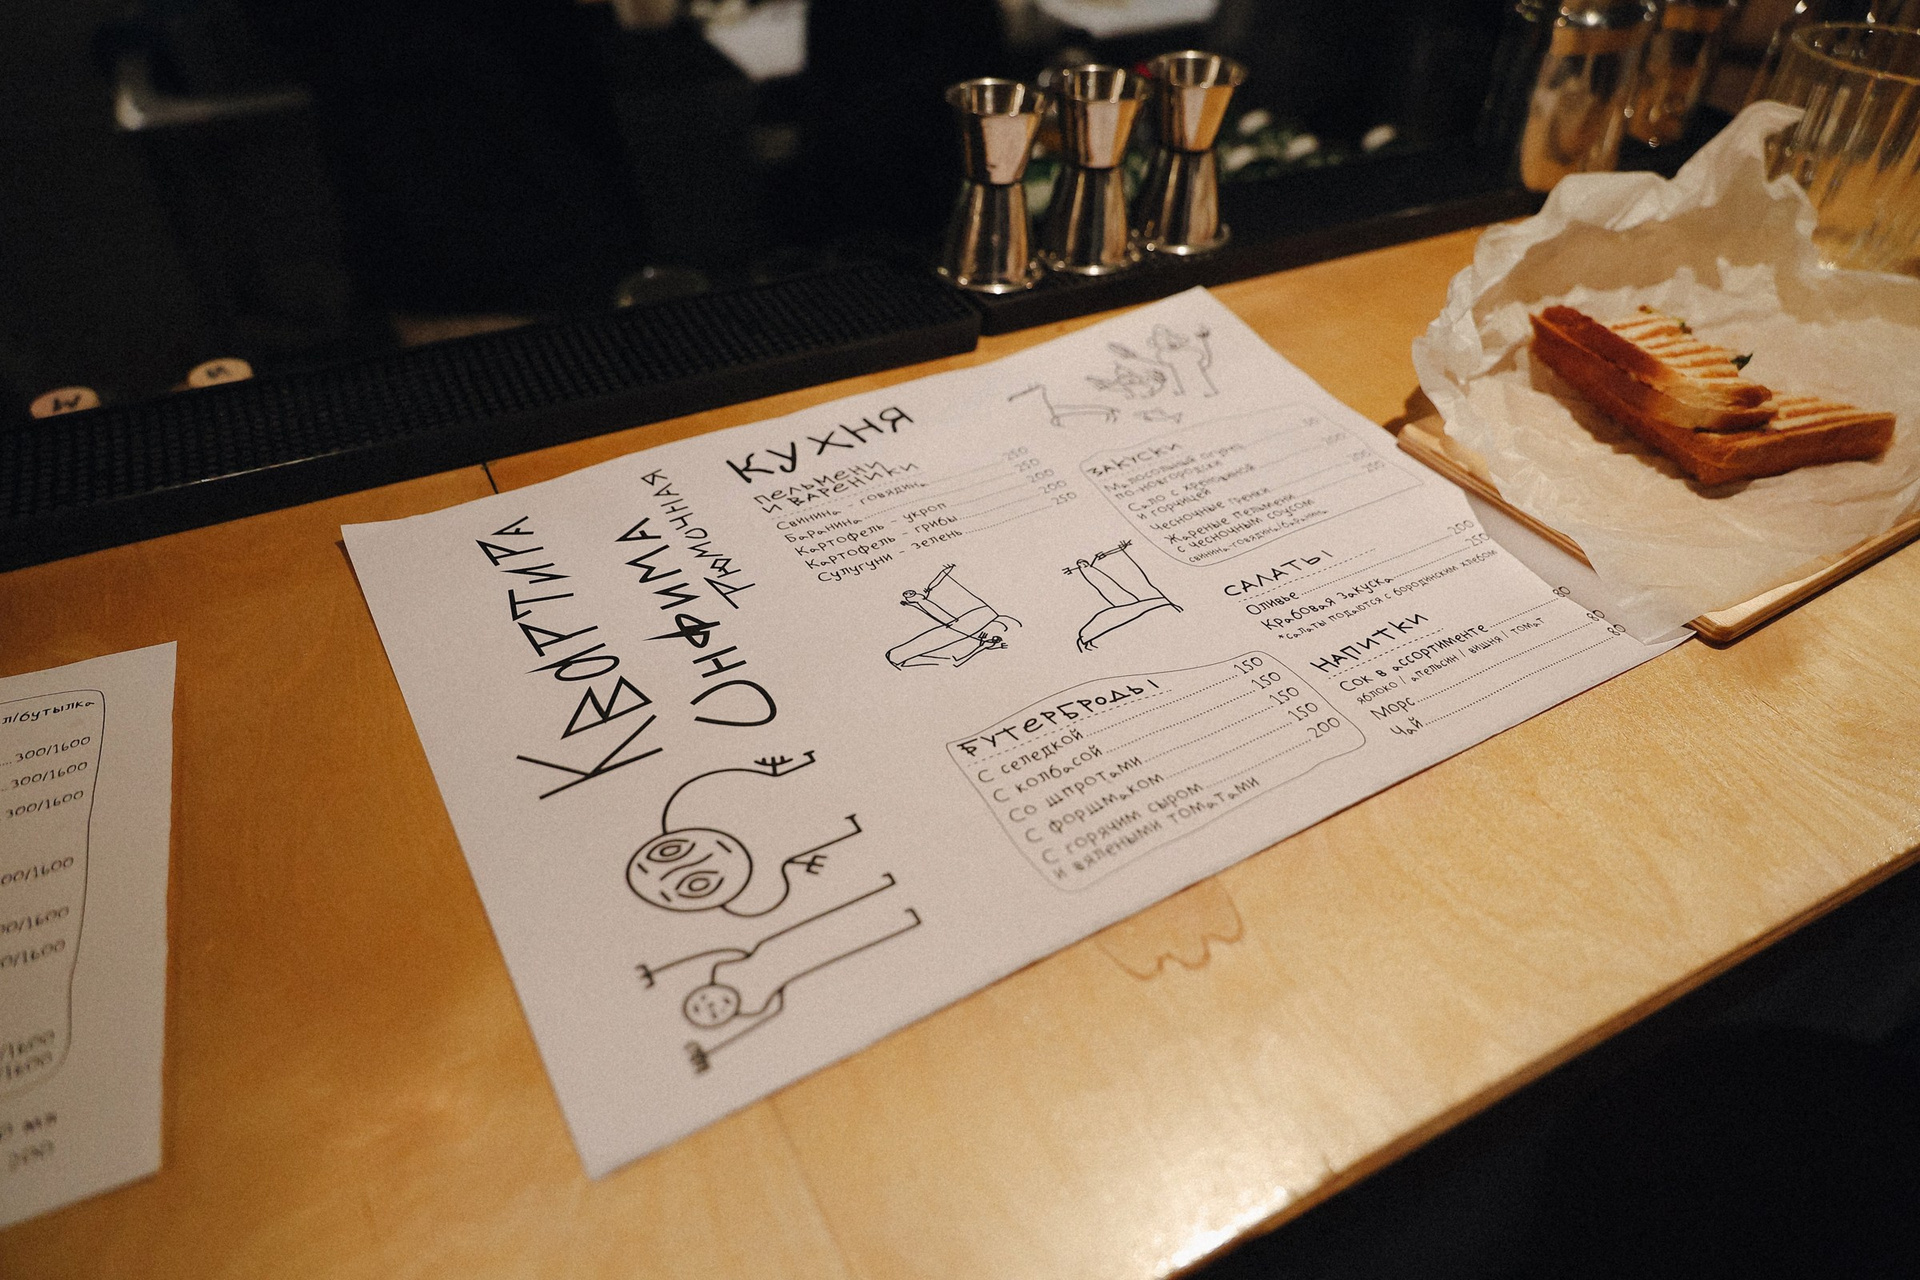 Квартира
Онфима
Рюмочная
Кухня
Пельмени
и вареники
Свинина - говядина 250
Баранина 250
Картофель - укроп 200
Картофель - грибы 200
Сулугуни - зелень 250
Закуски
Малосольный огурец
по-новгородски
Сало с хреновиной
и горчицей
Чесночные гренки
Жареные пельмени
с чесночным соусом
свинина-говядина/баранина
Салаты
Оливье 200
Крабовая закуска 250
*салаты подаются с бородинским хлебом
Бутерброды
С селедкой 150
С колбасой 150
Со шпротами 150
С форшмаком 150
С горячим сыром 200
и вялеными томатами
Напитки
Сок в ассортименте 80
яблоко / апельсин / вишня / томат
Морс 80
Чай 80
л/бутылка
300/1600
300/1600
300/1600
00/1600
00/1600
0/1600
/1600
/1600